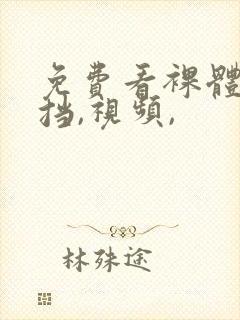 免費看裸體
挡,視頻,
林殊途